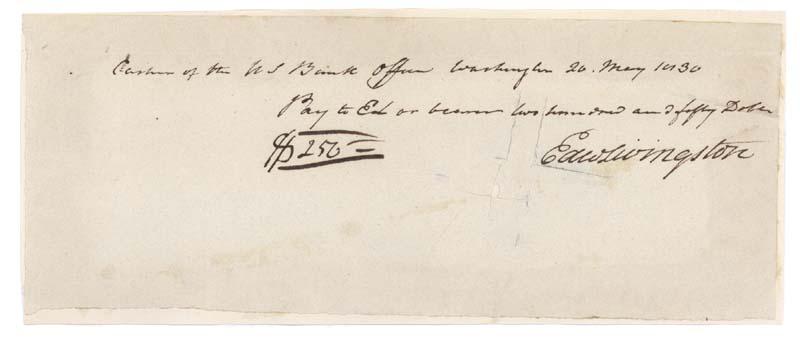 Cashier of the US Bank Office Washington 20. May 1830
Pay to Ed or bearer two hundred and fifty Dolls
$250=
Edw Livingston